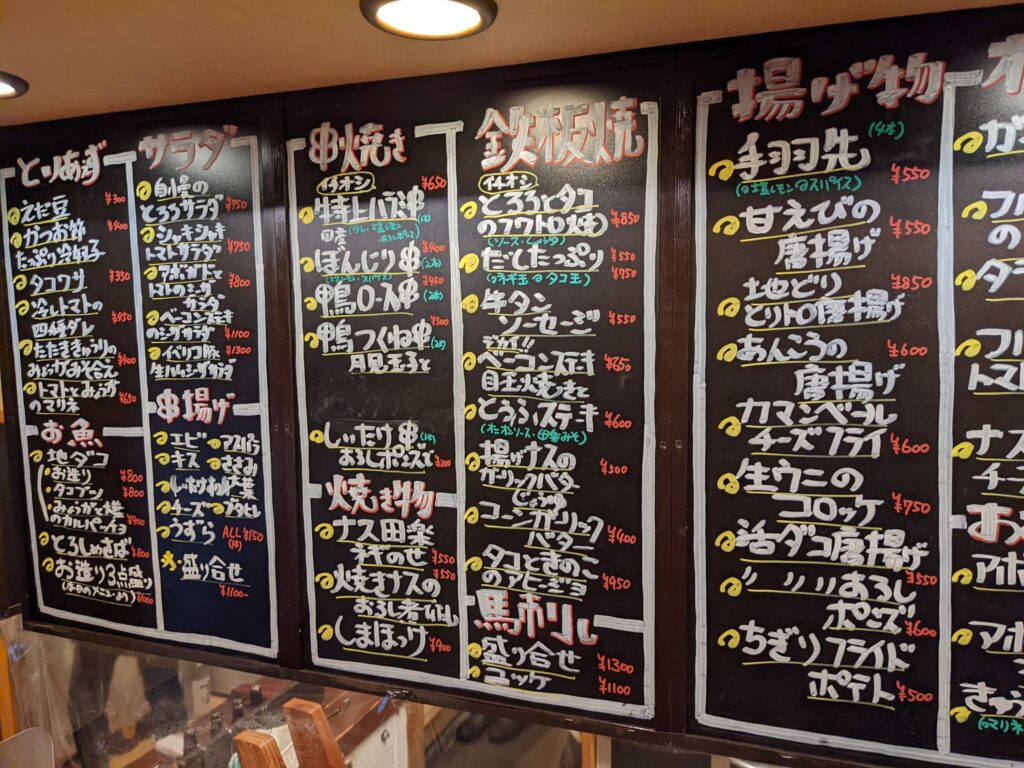 とりあえず
えだ豆 ¥300
かつお節 ¥400
たっぷり冷奴
タコワサ ¥350
冷しトマトの ¥450
四種ダレ
たたききゅうりの ¥400
みょうがみそ合え
トマトとみょうが ¥650
のマリネ
お魚
地ダコ
お造り ¥800
タコブツ ¥800
みょうがと
のカルパッチョ ¥900
とろしめさば ¥800
お造り3点盛り
(本日のメニューより) ¥1000
サラダ
自慢の
とろろサラダ ¥750
シャキシャキ
トマトサラダ ¥750
アボカドと
トマトのシーザー ¥800
サラダ
ベーコンステーキ
のシーザサラダ ¥1100
イベリコ豚と ¥1300
生ハムシーザサラダ
串揚げ
エビ アスパラ
キス ささみ
しいたけ 大葉
チーズ
うずら ALL ¥150
(1本)
盛り合せ
¥1100-
串焼き
イチオシ ¥650
特上ハラミ串 (1本)
国産 (タレ・塩レモン
おろしポンズ)
ぼんじり串 ¥400 (2本)
鴨ロース串 ¥450 (2本)
鴨つくね串 ¥500 (2本)
月見玉子と
しいたけ串 (1本)
おろしポンズで ¥200
焼き物
ナス田楽
ネギのせ ¥550
焼きナスの ¥550
おろし煮
しまほっけ ¥900
鉄板焼
イチオシ
とろろとタコ
のフワトロ焼 ¥850
(ソース・しょうゆ)
だしたっぷり ¥550
(ネギ玉 タコ玉) ¥750
牛タン
ソーセージ ¥550
デカ!!
ベーコンステーキ ¥650
目玉焼きと
とうふステーキ ¥600
(オニオンソース・田楽みそ)
揚げナスの
ガーリックバター ¥500
じょうゆ
コーンガーリック
バター ¥400
タコときのこ
のアヒージョ ¥950
馬刺し
盛り合せ ¥1300
ユッケ ¥1100
揚げ物
手羽先 (4本) ¥550
(塩レモン スパイス)
甘えびの ¥550
唐揚げ
地どり ¥850
とりトロ唐揚げ
あんこうの ¥600
唐揚げ
カマンベール
チーズフライ ¥600
生ウニの
コロッケ ¥750
活ダコ唐揚げ
¥550
〃 〃おろし
ポンズ ¥600
ちぎりフライド
ポテト ¥500
ガ
フル
の
タラ
フル
トマ
ナス
チー
アボ
アボ
きゅう
(マリネ